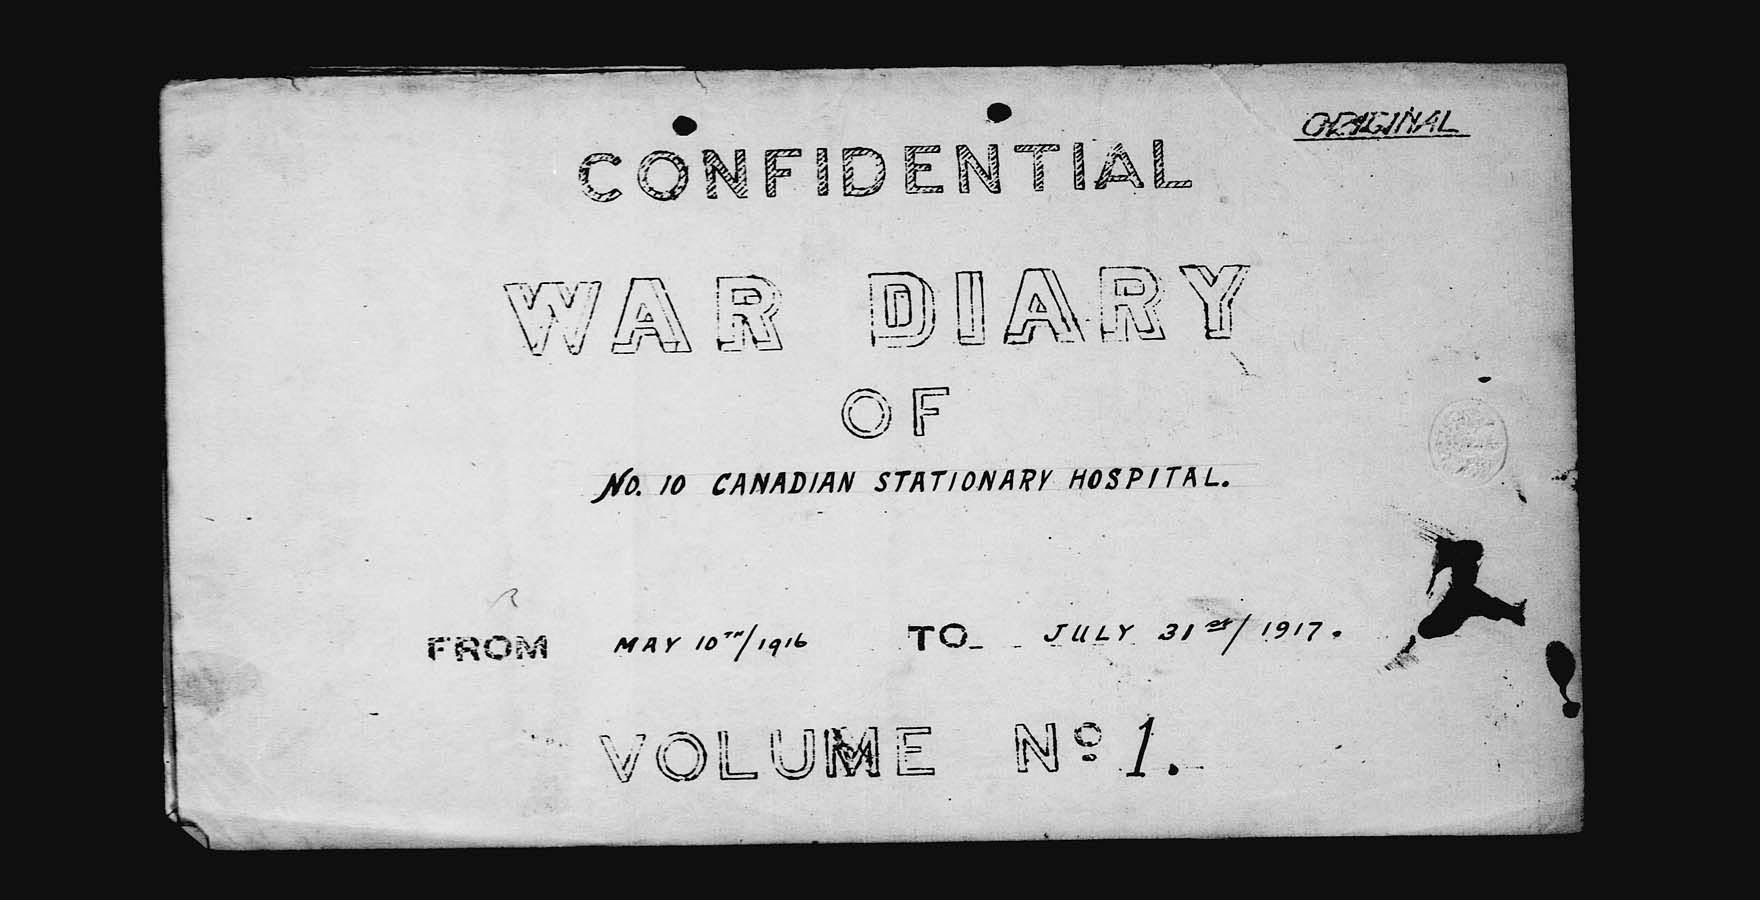 ORIGINAL
CONFIDENTIAL
WAR DIARY
OF
NO. 10 CANADIAN STATIONARY HOSPITAL.
FROM MAY 10TH/1916 TO JULY 31st/1917.
VOLUME No 1.